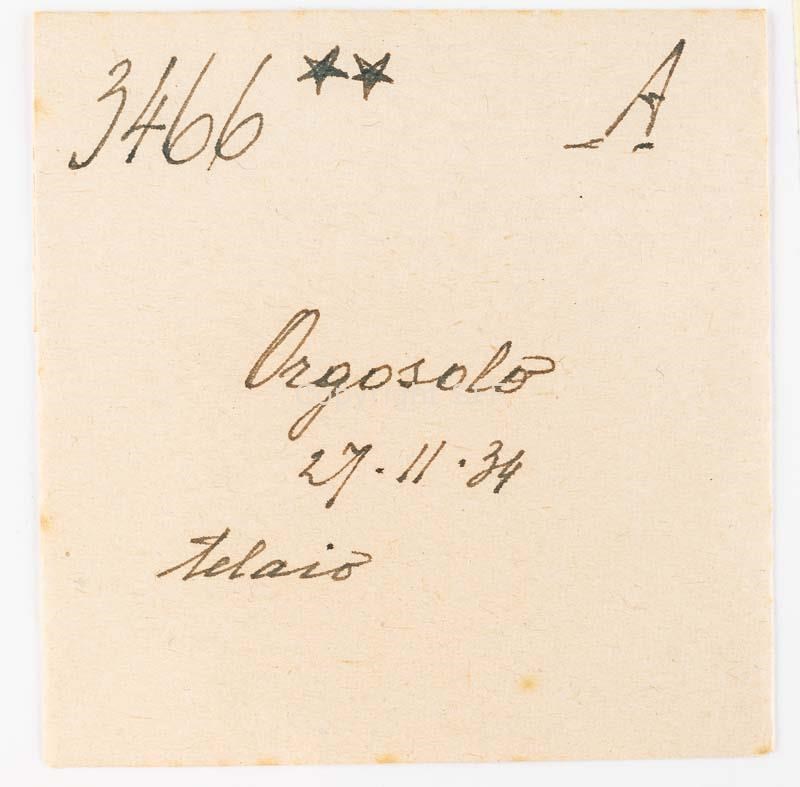 3466 ★★ A
Orgosolo
27·11·34
telaio